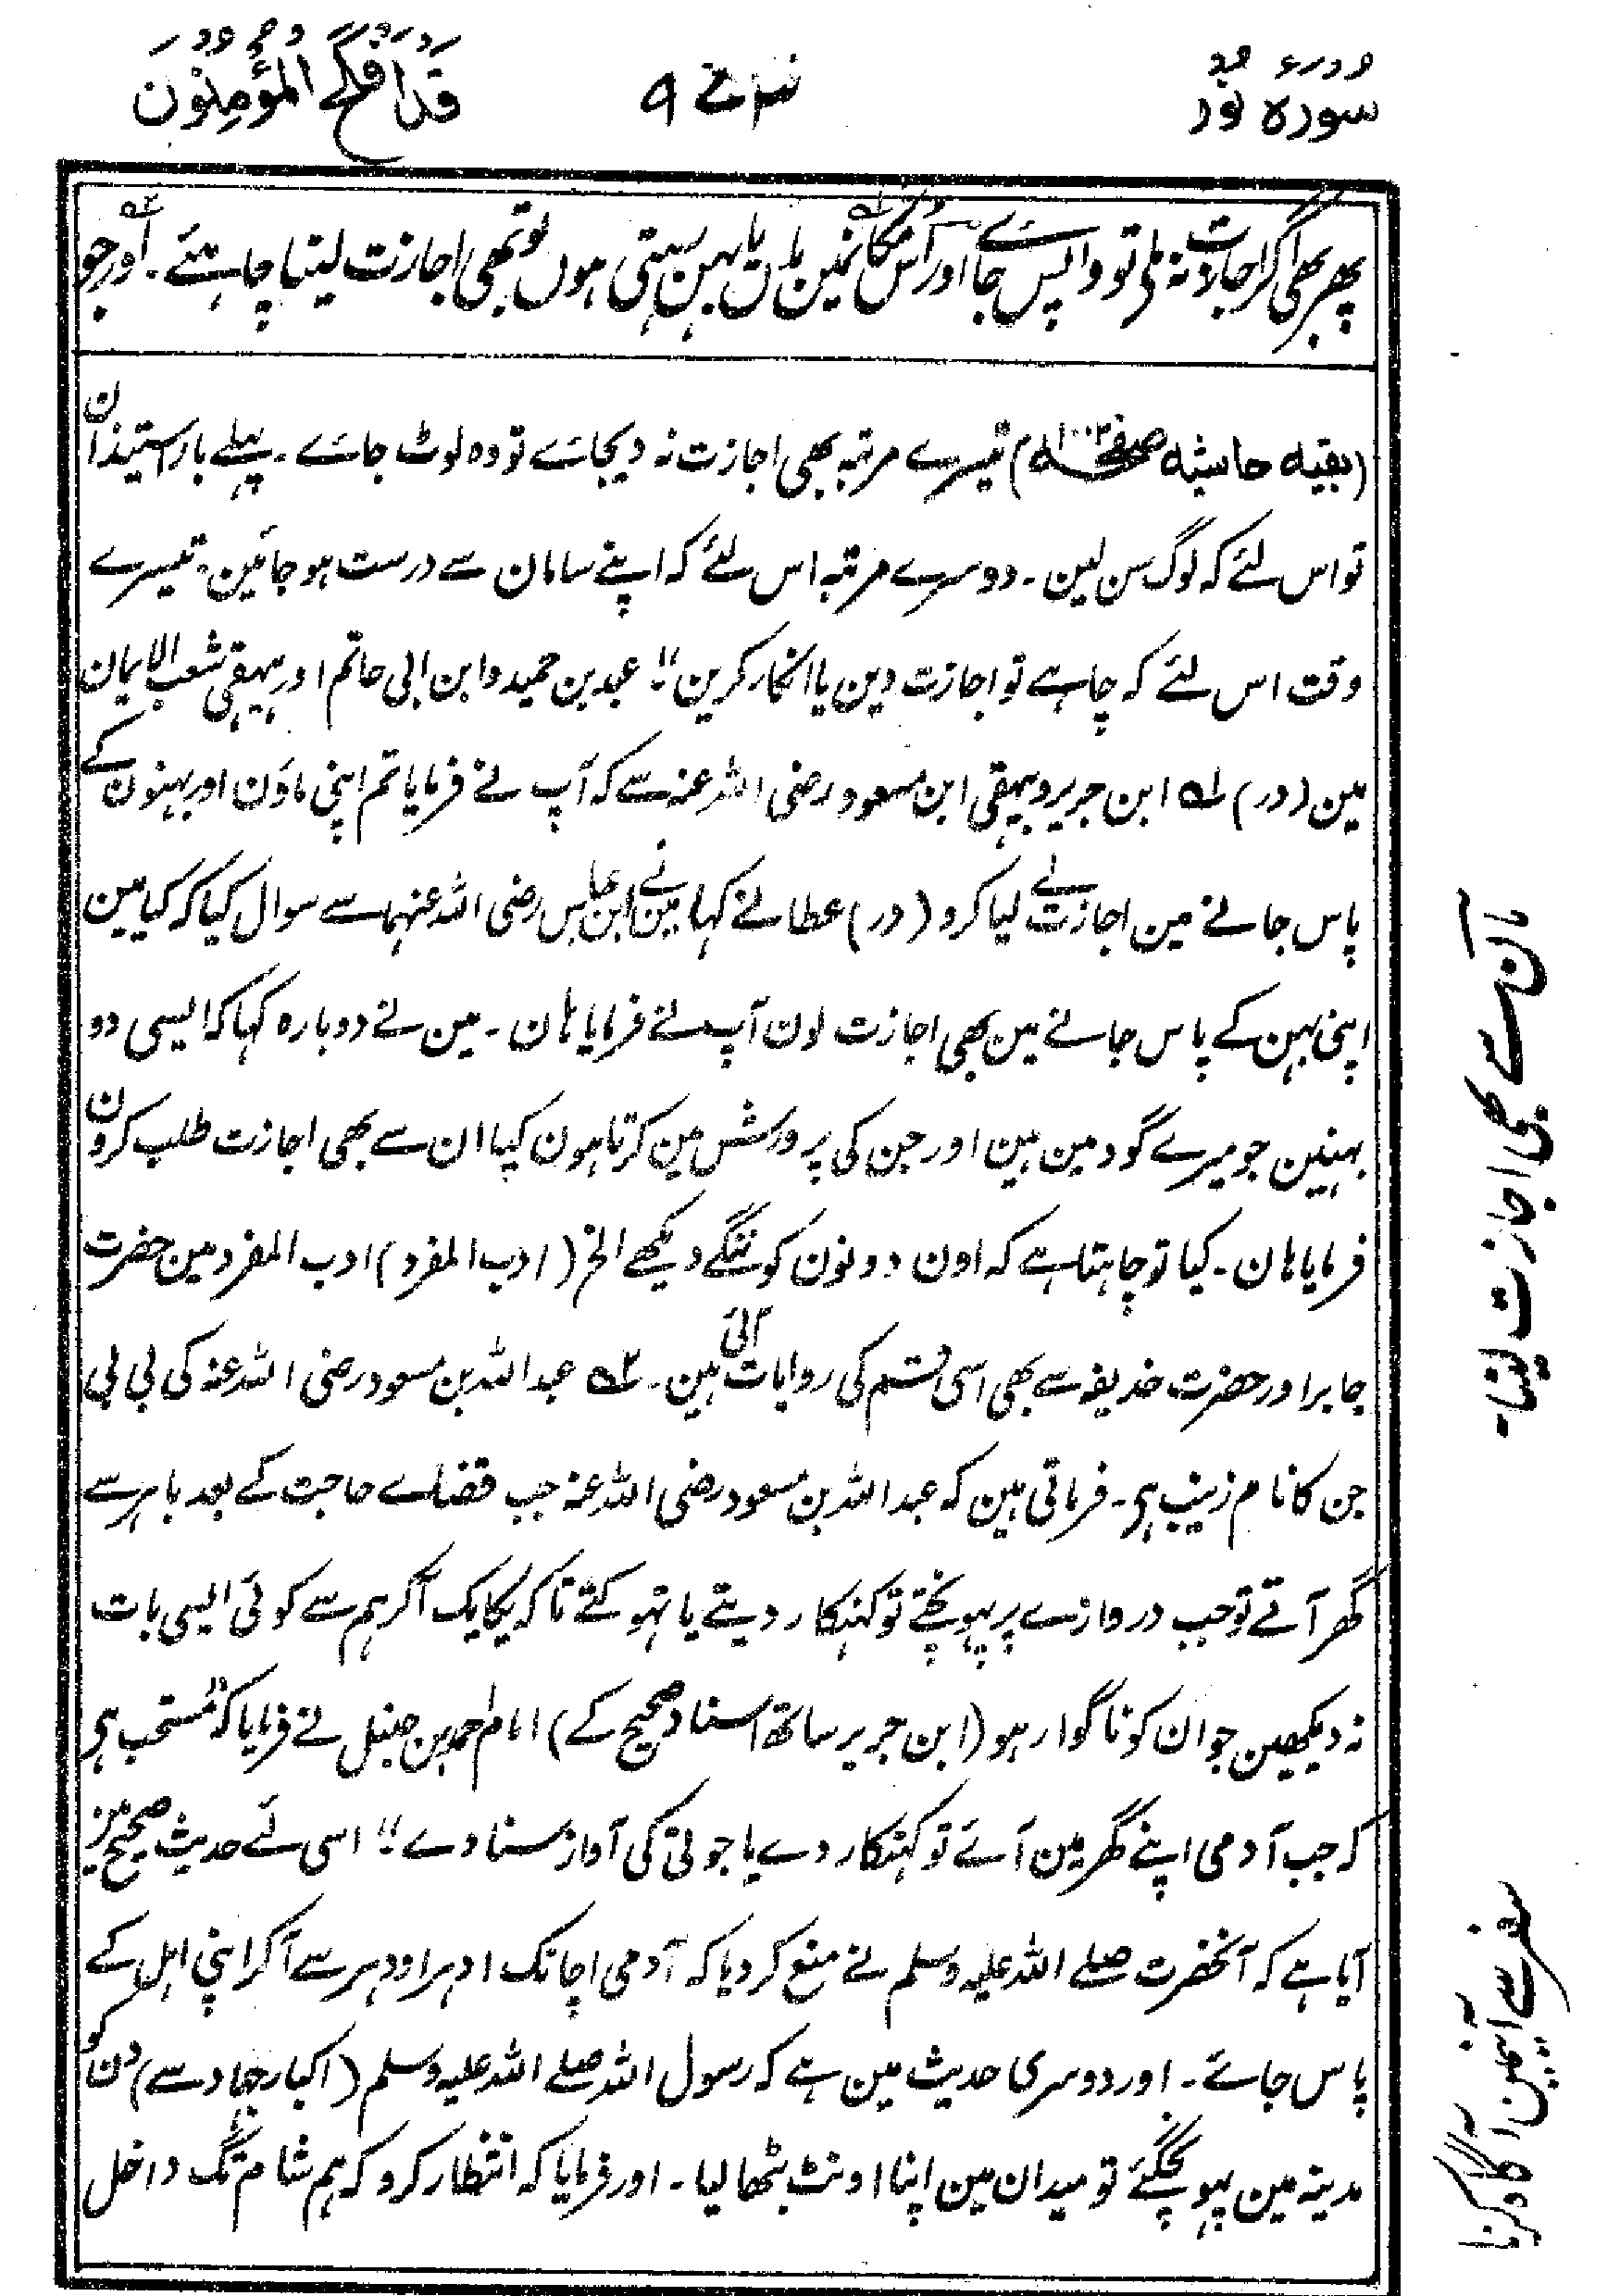 سورہ نور
قد افلح المؤمنون
پھر بھی اگر اجازت نہ ملی تو واپس جائے اور اُس مکانمین ماں یا بہن رہتی ہوں تو بھی اجازت لینا چاہئے۔ اور جو
(بقیہ حاشیہ صفحہ ۱۰۰۲) تیسرے مرتبہ بھی اجازت نہ دیجائے تو وہ لوٹ جائے۔ پہلے بار استیذان
تو اس لئے کہ لوگ سن لین۔ دوسرے مرتبہ اس لئے کہ اپنے سامان سے درست ہو جائین۔ تیسرے
وقت اس لئے کہ چاہے تو اجازت دین یا انکار کرین"۔ عبد بن حمید وابن ابی حاتم اور بیہقی شعب الایمان
مین (در) ۱ـہ ابن جریر وبیہقی ابن مسعود رضی اللہ عنہ سے کہ آپ نے فرمایا تم اپنی ماؤن اور بہنون کے
پاس جانے مین اجازت لے لیا کرو (در) عطا نے کہا مین نے ابن عباس رضی اللہ عنہما سے سوال کیا کہ کیا مین
اپنی بہن کے پاس جانے مین بھی اجازت لون آپ نے فرمایا ہان۔ مین نے دوبارہ کہا کہ ایسی دو
بہنین جو میرے گود مین ہین اور جن کی پرورش مین کرتا ہون کیا ان سے بھی اجازت طلب کرون
فرمایا ہان۔ کیا تو چاہتا ہے کہ اون دونون کو ننگے دیکھے الخ (ادب المفرد) ادب المفرد مین حضرت
جابر اور حضرت حذیفہ سے بھی اسی قسم کی روایات آئی ہین۔ ۲ـہ عبد اللہ بن مسعود رضی اللہ عنہ کی بی بی
جن کا نام زینب ہی۔ فرماتی ہین کہ عبد اللہ بن مسعود رضی اللہ عنہ جب قضاے حاجت کے بعد باہر سے
گھر آتے تو جب دروازے پر پہوپختے تو کہنکار دیتے یا تہوکتے تا کہ یکایک آکر ہم سے کوئی ایسی بات
نہ دیکھین جو ان کو ناگوار ہو (ابن جریر ساتھ اسناد صحیح کے) امام احمد بن حنبل نے فرمایا کہ "مستحب ہی
کہ جب آدمی اپنے گھر مین آئے تو کہنکار دے یا جوتی کی آواز سنا دے"۔ اسی لئے حدیث صحیح مین
آیا ہے کہ آنحضرت صلے اللہ علیہ وسلم نے منع کر دیا کہ آدمی اچانک ادہر اودہر سے آکر اپنی اہل کے
پاس جائے۔ اور دوسری حدیث مین ہے کہ رسول اللہ صلے اللہ علیہ وسلم (اکبار جہاد سے) دن کو
مدینہ مین پہونچگئے تو میدان مین اپنا اونٹ بٹھا لیا۔ اور فرمایا کہ انتظار کرو کہ ہم شام تک داخل
ماں سے بھی اجازت لینا۔
سفر سے آئین آگاہ کرنا